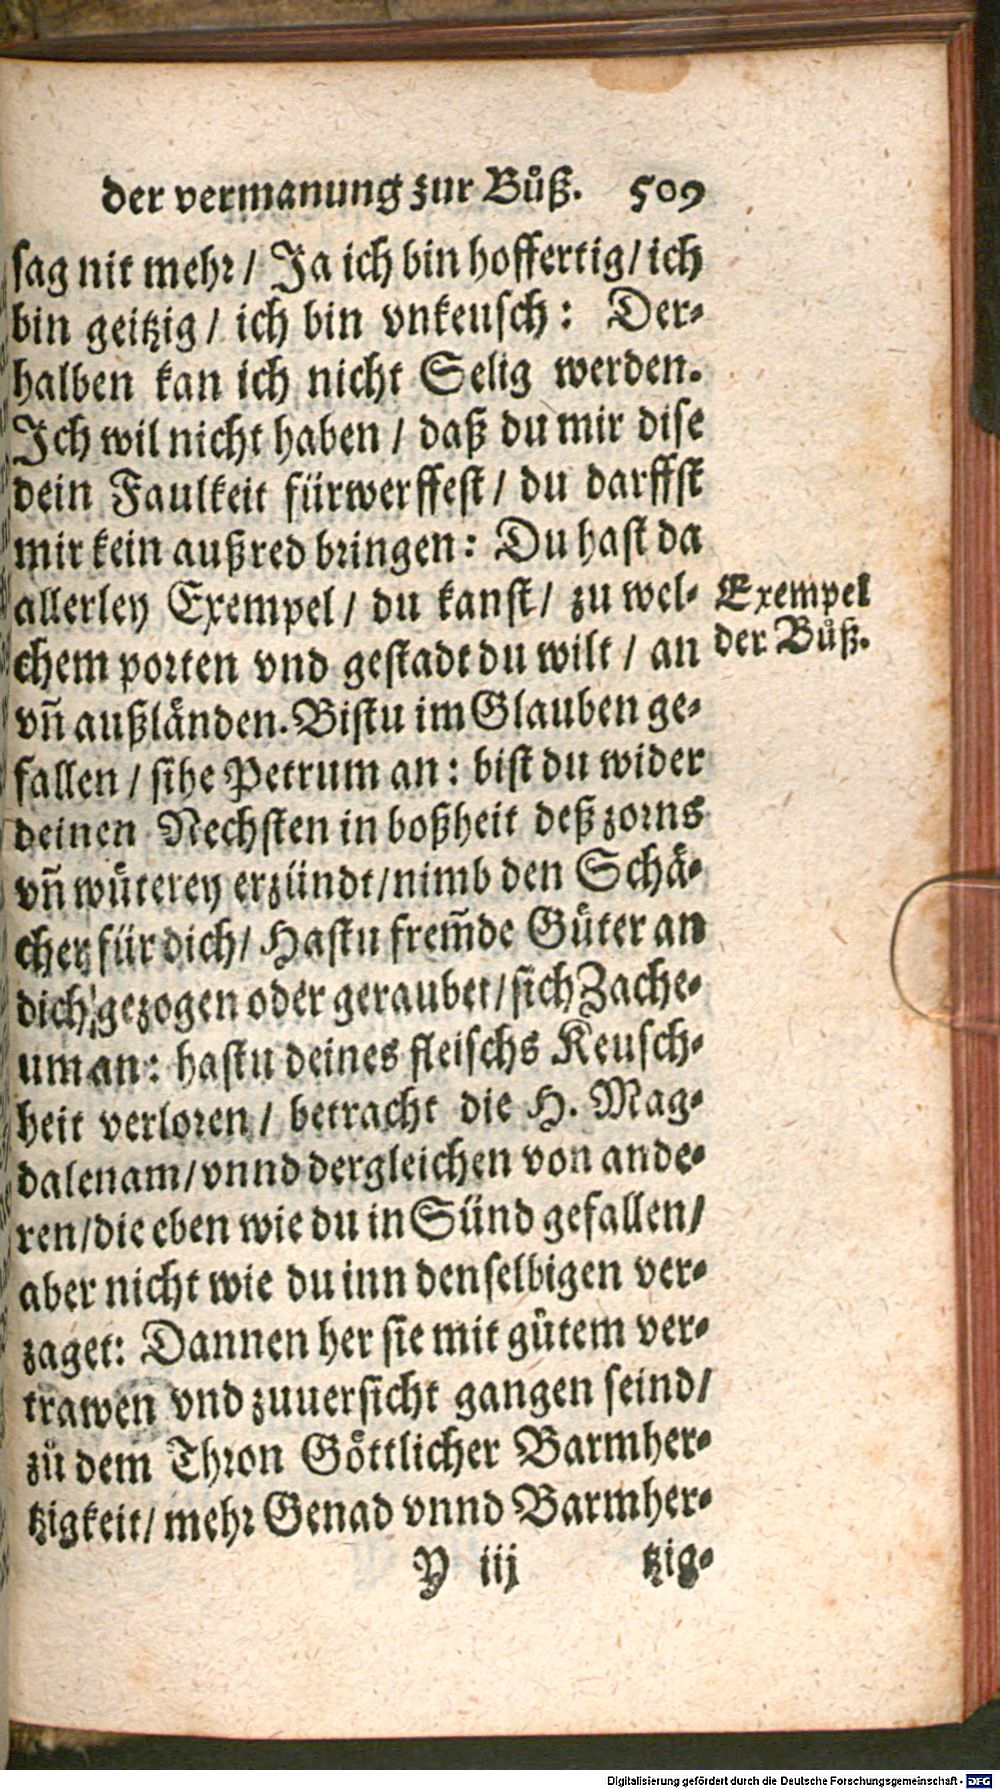 der vermanung zur Buͦß. 509
sag nit mehr / Ja ich bin hoffertig / ich
bin geitzig / ich bin vnkeusch : Der-
halben kan ich nicht Selig werden.
Ich wil nicht haben / daß du mir dise
dein Faulkeit fürwerffest / du darffst
mir kein außred bringen : Du hast da
allerley Exempel / du kanst / zu wel-
chem porten vnd gestadt du wilt / an
vñ außländen. Bistu im Glauben ge-
fallen / sihe Petrum an : bist du wider
deinen Nechsten in boßheit deß zorns
vñ wüterey erzündt / nimb den Schä-
cher für dich / Hastu frem̃de Güter an
dich gezogen oder geraubet / sich Zache-
um an : hastu deines fleischs Keusch-
heit verloren / betracht die H. Mag-
dalenam / vnnd dergleichen von ande-
ren / die eben wie du in Sünd gefallen /
aber nicht wie du inn denselbigen ver-
zaget : Dannen her sie mit guͦtem ver-
trawen vnd zuuersicht gangen seind /
zuͦ dem Thron Göttlicher Barmher-
tzigkeit / mehr Genad vnnd Barmher-
Y iij tzig-
Exempel
der Buͦß.
Digitalisierung gefördert durch die Deutsche Forschungsgemeinschaft - DFG